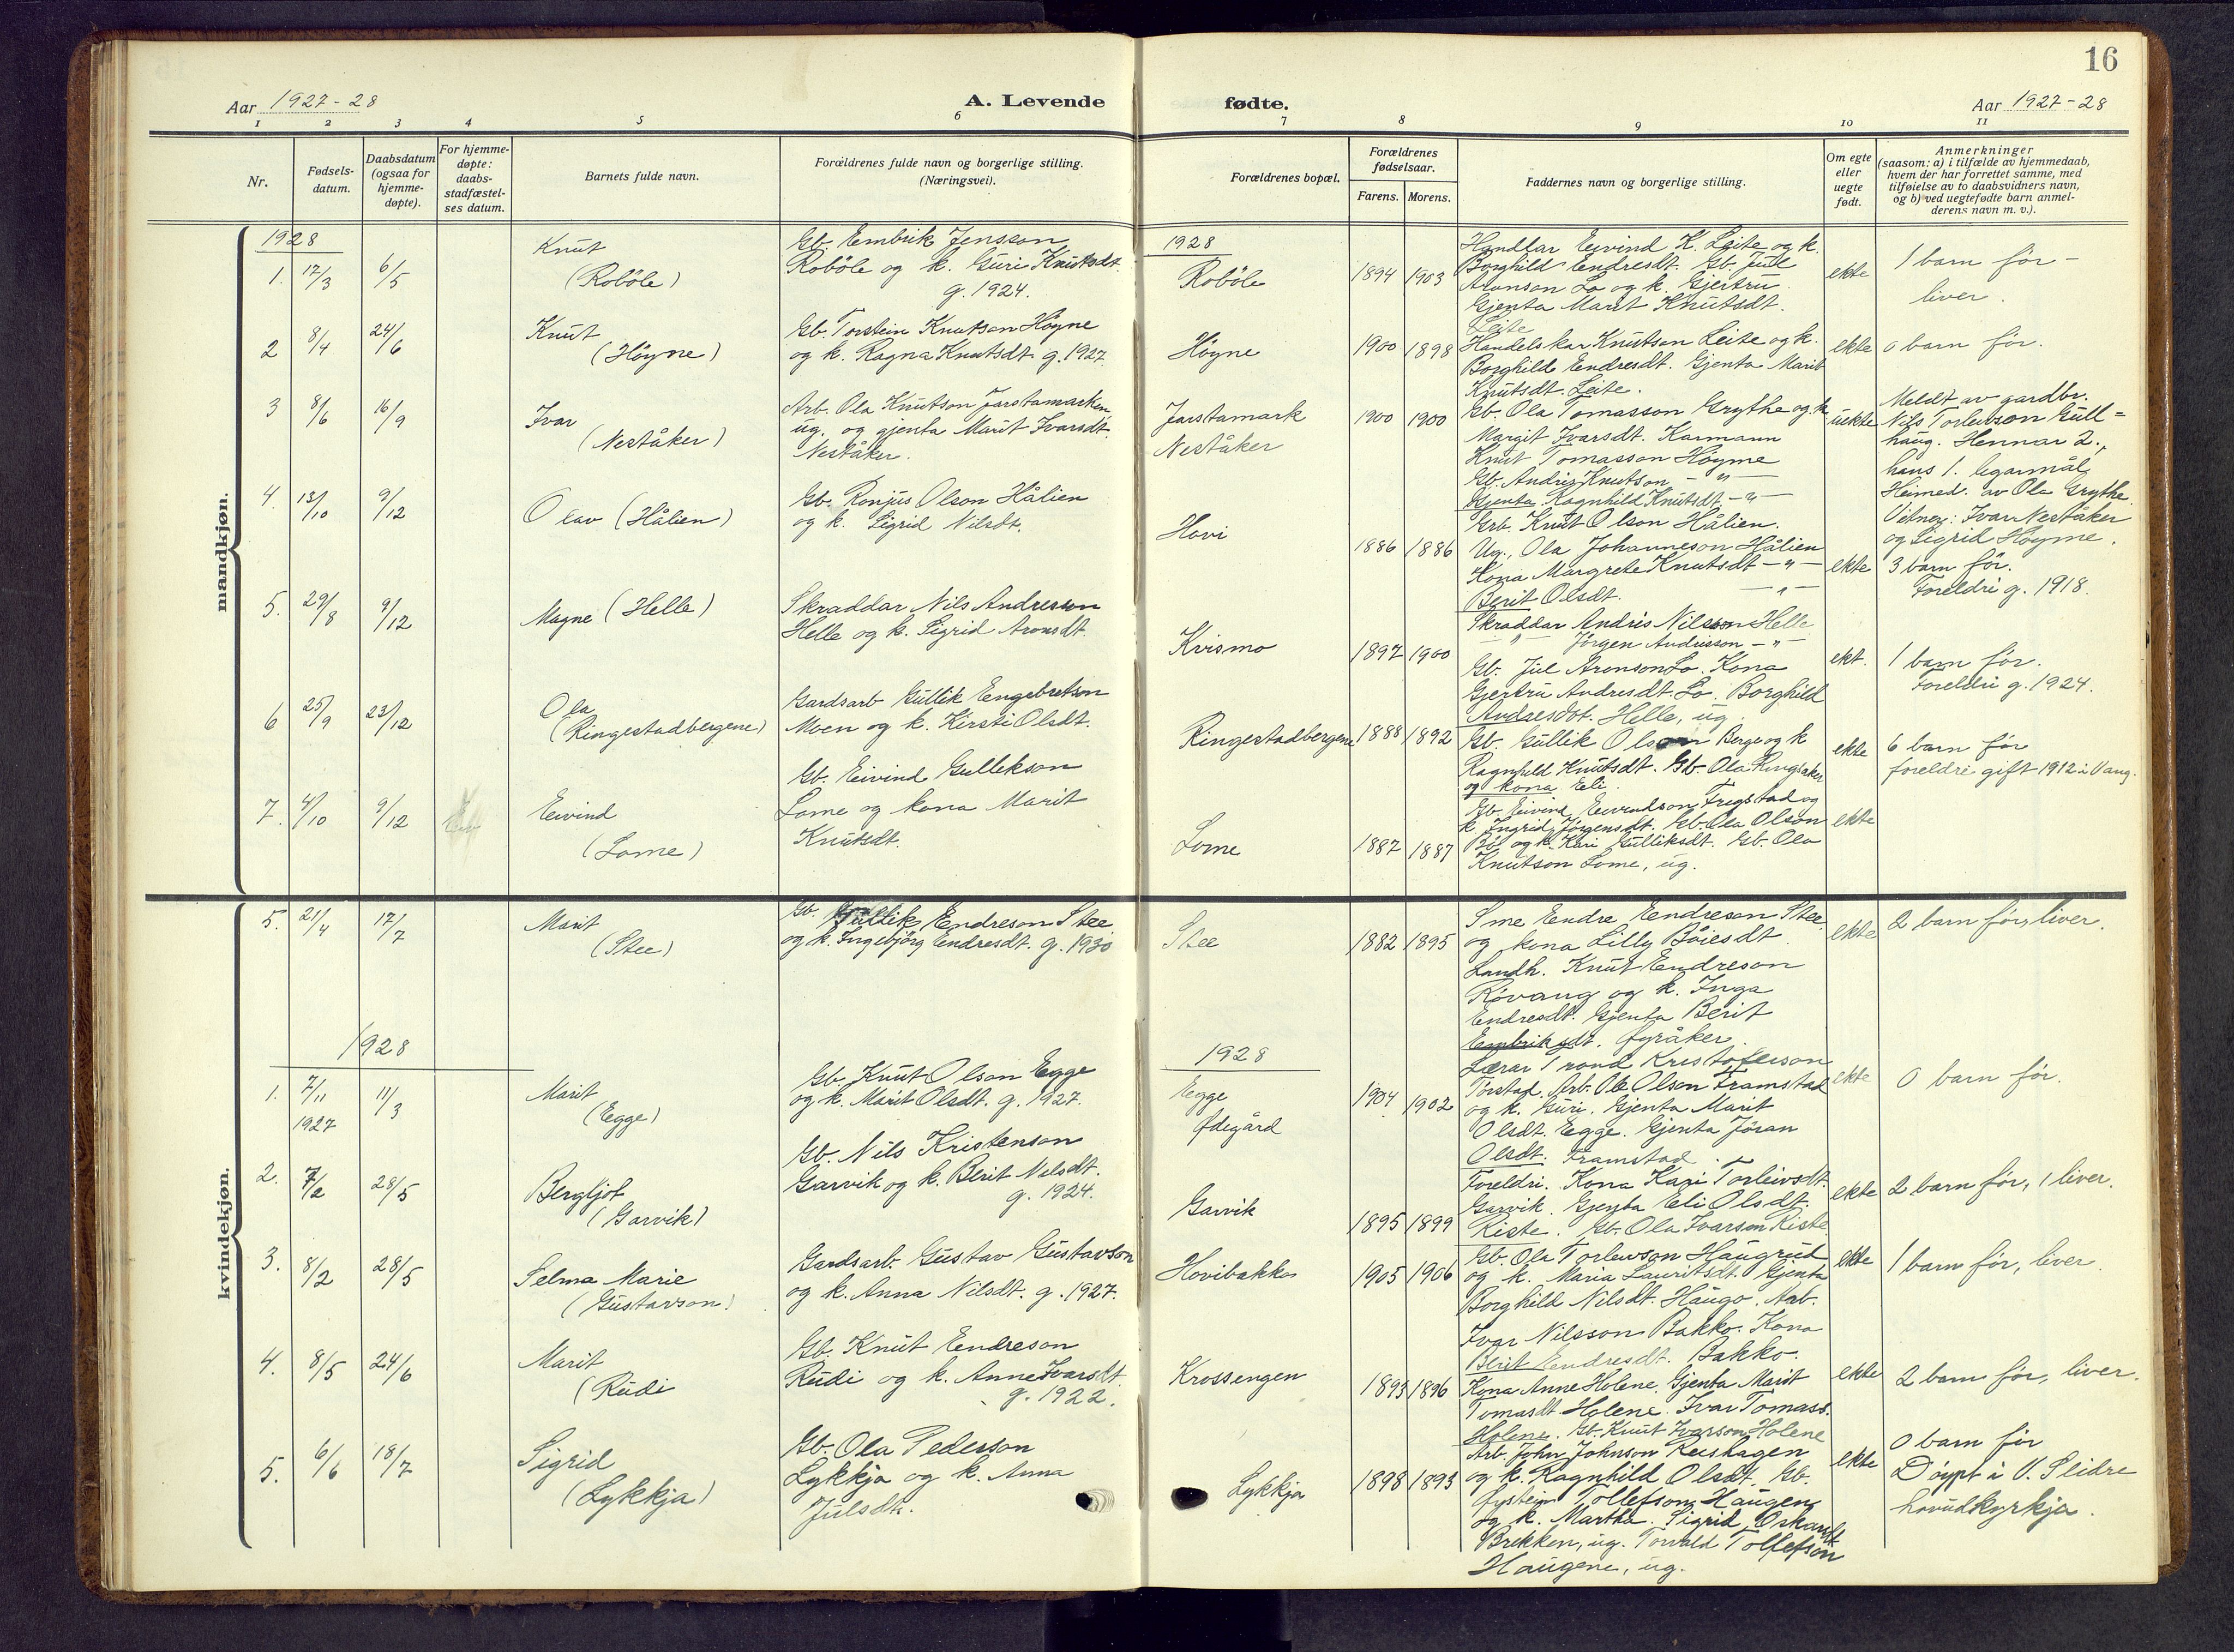 16
Aar 1927-28
A. Levende
fødte.
Aar 1927-28
1 2 3 4 5 6 7 8 9 10 11
Nr.
Fødsels-
datum.
Daabsdatum
(ogsaa for
hjemme-
døpte).
For hjemme-
døpte:
daabs-
stadfæstel-
ses datum.
Barnets fulde navn.
Forældrenes fulde navn og borgerlige stilling.
(Næringsvei).
Forældrenes bopæl.
Forældrenes
fødselsaar.
Farens. Morens.
Faddernes navn og borgerlige stilling.
Om egte
eller
uegte
født.
Anmerkninger
(saasom: a) i tilfælde av hjemmedaab,
hvem der har forrettet samme, med
tilføielse av to daabsvidners navn,
og b) ved uegtefødte barn anmel-
derens navn m. v.).
mandkjøn.
1928
1928
1. 17/3 6/5
Knut
(Robøle)
Gb. Embrik Jensson
Robøle og k. Guri Knutsdt.
g. 1924.
Robøle
1894 1903
Handlar Eivind K. Leite og k.
Borghild Endresdt. Gb. Jul
Aronson Lo og k. Gjertru
Gjenta Marit Knutsdt.
Leite
ekte
1 barn før -
liver.
2 8/4 24/6
Knut
(Høyne)
Gb. Torstein Knutson Høyne
og k. Ragna Knutsdt. g. 1927.
Høyne
1900 1898
Handelskar Knutson Leite og k.
Borghild Endresdt. Gjenta Marit
Knutsdt. Leite.
ekte
0 barn før.
3 8/6 16/9
Ivar
(Neståker)
Arb. Ola Knutson Jarstamarken,
ug. og gjenta Marit Ivarsdt.
Neståker.
Jarstamark
Neståker
1900 1900
Gb. Ola Tomasson Grythe og k.
Margit Ivarsdt. Karmann
Knut Tomasson Høyme
Gb. Andris Knutson - " -
Gjenta Ragnhild Knutsdt - " -
uekte
Meldt av gardbr.
Nils Torleivson Gull=
haug. Hennar 2.,
hans 1. legarmål,
Heimed. av Ola Grythe.
Vitner: Ivar Neståker
og Sigrid Høyme.
4. 13/10 9/12
Olav (Hålien)
Gb. Ronjus Olson Hålien
og k. Sigrid Nilsdt.
Hovi
1886 1886
Grb. Knut Olson Hålien.
Ug., Ola Johanneson Hålien
Kona Margrete Knutsdt - " -
Berit Olsdt. - " -
ekte
3 barn før.
Foreldri g. 1918.
5. 29/8 9/12
Magne (Helle)
Skraddar Nils Andresson
Helle og k. Sigrid Aronsdt.
Kvismo
1897 1900
Skraddar Andris Nilsson Helle
- " - Jørgen Andrisson - " -
Gb. Jul Aronson Lo. Kona
Gjertru Andresdt. Lo. Borghild
Andresdot. Helle, ug.
ekt.
1 barn før.
Foreldri g. 1924.
6 25/9 23/12
Ola
(Ringestadbergene)
Gardsarb Gullik Engebretson
Moen og k. Kirsti Olsdt.
Ringestadbergene
1888 1892
Gb. Gullik Olson Berge og k
Ragnhild Knutsdt. Gb. Ola Ringsaker
og kona Eli.
ekte
6 barn før
foreldri gift 1912 i Vang.
7. 4/10 9/12
Eivind
(Lome)
Gb. Eivind Gullekson
Lome og kona Marit
Knutsdt.
Lome
1887 1887
Gb. Eivind Eivindson Fregstad og
k Ingrid Jørgensdt. Gb. Ola Olson
Bø og k. Kari Gulliksdt. Gb. Ola
Knutson Lome, ug.
ekte
kvindekjøn.
5. 21/4 17/7
Marit
(Stee)
Gb. Gullik Endreson Stee
og k. Ingebjørg Endresdt. g. 1930
Stee
1882 1895
Sme Endre Endreson Stee
og kona Lilly Bøiesdt
Landh. Knut Endreson
Røvang og k. Inga
Endresdt. Gjenta Berit
Embriksdt. Øyråker.
ekte
2 barn før, liver.
1928
1928
1. 7/11 11/3
1927
Marit
(Egge)
Gb. Knut Olson Egge
og k. Marit Olsdt. g. 1927.
Egge
Ødegård
1904 1902
Lærar Trond Kristoferson
Tørstad. Arb. Ole Olson Framstad
og k. Guri. Gjenta Marit
Olsdt. Egge. Gjenta Jøran
Olsdt. Framstad.
ekte
0 barn før.
2. 7/2 28/5
Bergljot
(Garvik)
Gb. Nils Kristenson
Garvik og k. Berit Nilsdt.
g. 1924.
Garvik
1895 1899
Foreldri. Kona Kari Torleivsdt.
Garvik. Gjenta Eli Olsdt.
Riste. Gb. Ola Ivarson Riste
ekte
2 barn før, 1 liver.
3. 8/2 28/5
Selma Marie
(Gustavson)
Gardsarb. Gustav Gustavson
og k. Anna Nilsdt. g. 1927.
Hovibakko
1905 1906
Gb. Ola Torlewson Haugrud
og k. Maria Lauritsdt. Gjenta
Borghild Nilsdt. Haugo. Arb.
Ivar Nilsson Bakko. Kona
Berit Endresdt. Bakko.
ekte
1 barn før, liver.
4. 8/5 24/6
Marit
(Rudi
Gb. Knut Endreson
Rudi og k. Anne Ivarsdt.
g. 1922.
Krossengen
1893 1896
Kona Anne Holene. Gjenta Marit
Tomasdt. Holene. Ivar Tomass.
Holene. Gb. Knut Ivarson Holene
ekte
2 barn før, liver.
5. 6/6 18/7
Sigrid
(Lykkja)
Gb. Ola Pederson
Lykkja og k. Anna
Julsdt.
Lykkja
1898 1893
Arb. John Johnson Reishagen
og k. Ragnhild Olsdt. Gb.
Øystein Tollefson Haugen
og k. Martha. Sigrid Oskarsdt
Brekken, ug. Torvald Tollefson
Haugene, ug.
ekte
0 barn før
Døypt i V. Slidre
hovudkyrkja.